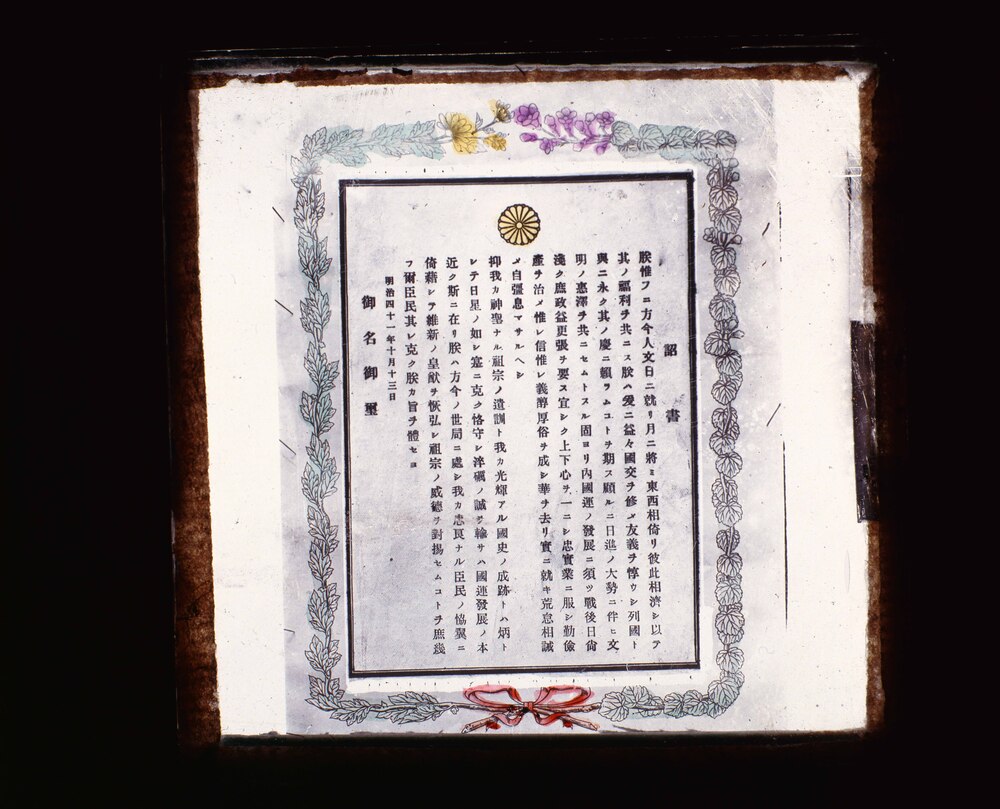 詔書
朕惟フニ方今人文日ニ就リ月ニ將ミ東西相倚リ彼此相濟シ以テ
其ノ福利ヲ共ニス朕ハ爰ニ益々國交ヲ修メ友義ヲ惇ウシ列國ト
與ニ永ク其ノ慶ニ賴ラムコトヲ期ス顧ルニ日進ノ大勢ニ伴ヒ文
明ノ惠澤ヲ共ニセムトスル固ヨリ內國運ノ發展ニ須ツ戰後日尙
淺ク庶政益更張ヲ要ス宜シク上下心ヲ一ニシ忠實業ニ服シ勤儉
產ヲ治メ惟レ信惟レ義醇厚俗ヲ成シ華ヲ去リ實ニ就キ荒怠相誡
メ自彊息マサルヘシ
抑我カ神聖ナル祖宗ノ遺訓ト我カ光輝アル國史ノ成跡トハ炳ト
シテ日星ノ如シ寔ニ克ク恪守シ淬礪ノ誠ヲ輸サハ國運發展ノ本
近ク斯ニ在リ朕ハ方今ノ世局ニ處シ我カ忠良ナル臣民ノ協翼ニ
倚藉シテ維新ノ皇猷ヲ恢弘シ祖宗ノ威德ヲ對揚セムコトヲ庶幾
フ爾臣民其レ克ク朕カ旨ヲ體セヨ
明治四十一年十月十三日
御名御璽